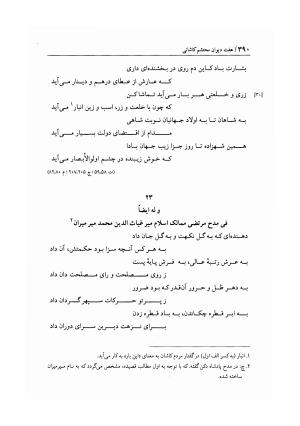 ۳۹۰ / هفت دیوان محتشم کاشانی
بشارت باد کاین دم روی در بخشنده‌ای داری
که عارش از عطای درهم و دینار می‌آید
[۳۰] زری و خلعتی هر بار می‌آید تماشا کن
که چون با خلعت و زر، اسب و زین انبار۱ می‌آید
به شاهان تا به اولاد جهانبان نوبت شاهی
مدام از اقتضای دولت بسیار می‌آید
همین شهزاده تا روز جزا زیب جهان بادا
که خوش زیبنده در چشم اولوالأبصار می‌آید
۲۳
و له ایضاً
فی مدح مرتضی ممالک اسلام میر غیاث الدین محمد میر میران۲
دهنده‌ای که به گل نکهت و به گل جان داد
به هر کس آنچه سزا بود حکمتش، آن داد
به عرش رتبهٔ عالی، به فرش پایهٔ پست
ز روی مصلحت و رای مصلحت دان داد
به دهر ظل و حرور آن‌قدر که بود ضرور
ز پرتو حرکات سپهر گردان داد
به ابر قطره چکاندن، به باد قطره زدن
برای نزهت دیرین سرای دوران داد
۱. انبار (به کسر الف اول) در گفتار مردم کاشان به معنای «این بار» به کار می‌آید.
۲. ج: در مدح پادشاه دکن گفته. که با توجه به اول مطالب قصیده، مشخص می‌گردد که به نام میرمیران
ساخته شده.